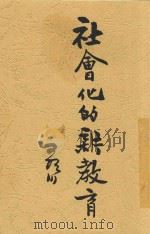 社會化的新教育
www.mtoou.info